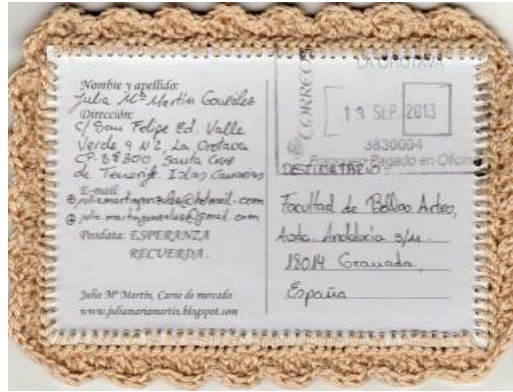 Nombre y apellido:
Julia Mª Martín González
Dirección:
C/ San Felipe Ed. Valle
Verde 9 N2, La Orotava
CP. 38300, Santa Cruz
de Tenerife. Islas Canarias
E-mail
juliamartingonzales@hotmail.com
julia.martingonzales@gmail.com
Posdata: ESPERANZA
RECUERDA.
Julia Mª Martín, Carne de mercado
www.juliamariamartin.blogspot.com
LA OROTAVA
CORREOS
13 SEP 2013
3830004
Franqueo Pagado en Oficina
DESTINATARIO
Facultad de Bellas Artes,
Avda. Andalucía s/n.
18014 Granada,
España